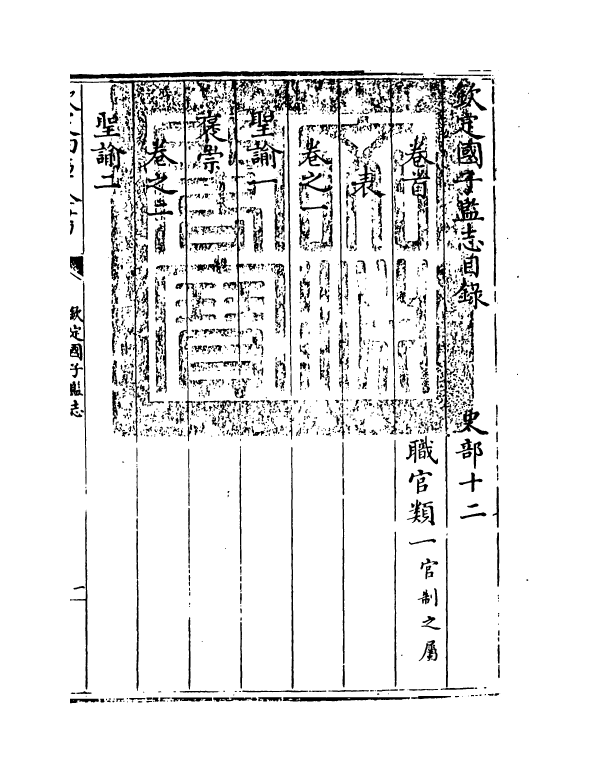 欽定國子監志目錄 史部十二
卷首 職官類一官制之屬
表
卷之一
聖諭一
褒崇
卷之二
聖諭二
欽定國子監志